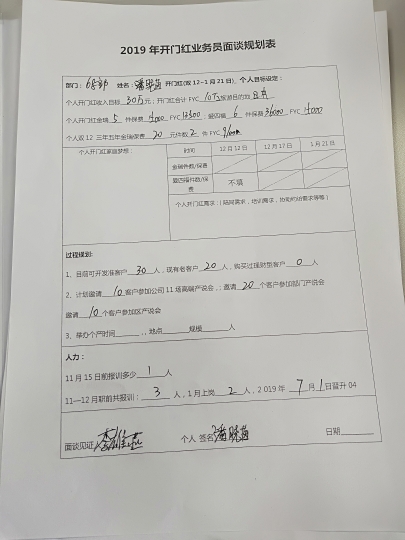 2019 年开门红业务员面谈规划表
部门: 姓名: 开门红(双12-1月21日), 个人目标设定:
个人开门红收入目标 30万 元; 开门红合计 FYC 10万 旅游目的地
个人开门红金瑞 5 件保费 4000 FYC 13500 ; 爱四福 6 件保费 36000 FYC 14000
个人双 12 三年五年金瑞保费 20 元件数 2 件 FYC
个人开门红家庭梦想: 时间 12月12日 12月17日 1月21日
金瑞件数/保费
爱四福件数/保费 不填
个人开门红需求: ( 陪同需求, 培训需求, 协助约访需求等等 )
过程规划:
1、目前可开发准客户 30 人, 现有老客户 20 人, 购买过理财型客户 0 人
2、计划邀请 10 客户参加公司 11 场高端产说会, ; 邀请 20 个客户参加部门产说会
邀请 10 个客户参加区产说会
3、举办个产时间 , , 地点 规模 人
人力:
11 月 15 日前报训多少 1 人
11—12 月职前共报训: 3 人, 1 月上岗 2 人, 2019 年 7 月 1 日晋升 04
面谈见证人 个人 签名 日期